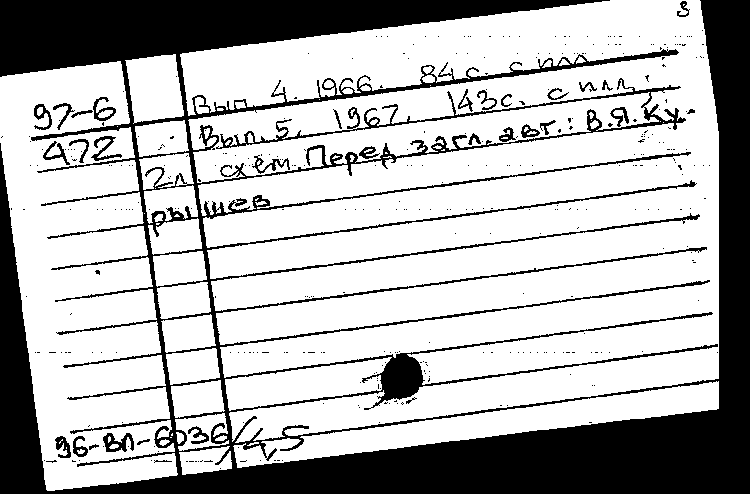 3
97-6
472
Вып. 4. 1966. 84 с. с илл.
Вып. 5. 1967. 143 с. с илл.;
2л. схем. Перед загл. авт.: В.Я. Ку-
рышев
96-ВЛ-6036/4,5